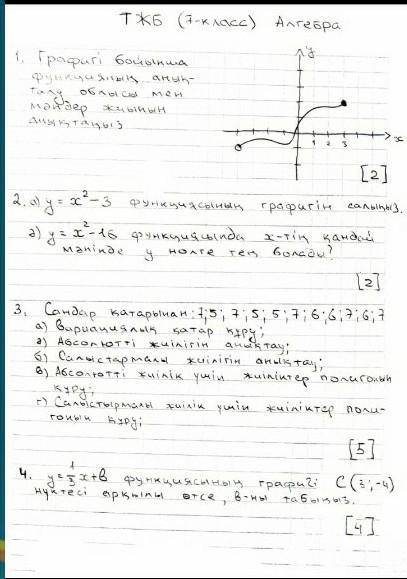 ТЖБ (7-класс) Алгебра
1. Графигі бойынша
функцияның анық-
талу облысы мен
мәндер жиынын
анықтаңыз
y
x
1 2 3
[2]
2. а) y = x² - 3 функциясының графигін салыңыз.
ә) y = x² - 16 функциясында x-тің қандай
мәнінде y нөлге тең болады?
[2]
3. Сандар қатарынан: 7; 5; 7; 5; 5; 7; 6; 6; 7; 6; 7
а) Вариациялық қатар құру;
ә) Абсолютті жиілігін анықтау;
б) Салыстармалы жиілігін анықтау;
в) Абсолютті жиілік үшін жиіліктер полигонын
құру;
г) Салыстырмалы жиілік үшін жиіліктер поли-
гонын құру;
[5]
4. y = 1/3 x + в функциясының графигі C (3; -4)
нүктесі арқылы өтсе, в-ны табыңыз.
[4]